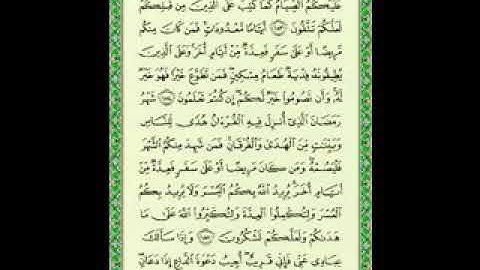 عَلَيْكُمُ الصِّيَامُ كَمَا كُتِبَ عَلَى الَّذِينَ مِن قَبْلِكُمْ
لَعَلَّكُمْ تَتَّقُونَ ﴿١٨٣﴾ أَيَّامًا مَّعْدُودَاتٍ ۚ فَمَن كَانَ مِنكُم
مَّرِيضًا أَوْ عَلَىٰ سَفَرٍ فَعِدَّةٌ مِّنْ أَيَّامٍ أُخَرَ ۚ وَعَلَى الَّذِينَ
يُطِيقُونَهُ فِدْيَةٌ طَعَامُ مِسْكِينٍ ۖ فَمَن تَطَوَّعَ خَيْرًا فَهُوَ خَيْرٌ
لَّهُ ۚ وَأَن تَصُومُوا خَيْرٌ لَّكُمْ ۖ إِن كُنتُمْ تَعْلَمُونَ ﴿١٨٤﴾ شَهْرُ
رَمَضَانَ الَّذِي أُنزِلَ فِيهِ الْقُرْءَانُ هُدًى لِّلنَّاسِ
وَبَيِّنَاتٍ مِّنَ الْهُدَىٰ وَالْفُرْقَانِ ۚ فَمَن شَهِدَ مِنكُمُ الشَّهْرَ
فَلْيَصُمْهُ ۖ وَمَن كَانَ مَرِيضًا أَوْ عَلَىٰ سَفَرٍ فَعِدَّةٌ مِّنْ
أَيَّامٍ أُخَرَ ۗ يُرِيدُ اللَّهُ بِكُمُ الْيُسْرَ وَلَا يُرِيدُ بِكُمُ
الْعُسْرَ وَلِتُكْمِلُوا الْعِدَّةَ وَلِتُكَبِّرُوا اللَّهَ عَلَىٰ مَا
هَدَىٰكُمْ وَلَعَلَّكُمْ تَشْكُرُونَ ﴿١٨٥﴾ وَإِذَا سَأَلَكَ
عِبَادِي عَنِّي فَإِنِّي قَرِيبٌ ۖ أُجِيبُ دَعْوَةَ الدَّاعِ إِذَا دَعَانِ ۖ